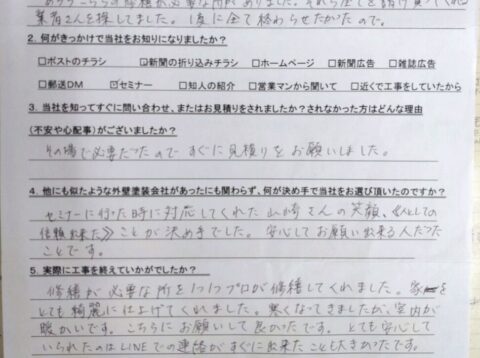 業者さんを探してました。1度に全て終わらせたかったので。
2. 何がきっかけで当社をお知りになりましたか?
□ポストのチラシ □新聞の折り込みチラシ □ホームページ □新聞広告 □雑誌広告
□郵送DM ☑セミナー □知人の紹介 □営業マンから聞いて □近くで工事をしていたから
3. 当社を知ってすぐに問い合わせ、またはお見積りをされましたか?されなかった方はどんな理由
(不安や心配事)がございましたか?
その場で必要だったので すぐに見積りを お願いしました。
4. 他にも似たような外壁塗装会社があったにも関わらず、何が決め手で当社をお選び頂いたのですか?
セミナーに行った時に対応してくれた山崎さんの笑顔、《人としての
信頼出来た》ことが決め手でした。安心してお願い出来る人だった
ことです。
5. 実際に工事を終えていかがでしたか?
修繕が必要な所を1つ1つプロが修繕してくれました。家を
とても綺麗に仕上げてくれました。寒くなってきましたが、室内が
暖かいです。こちらにお願いして良かったです。とても安心して
いられたのはLINEでの連絡がすぐに出来たことも大きかったです。